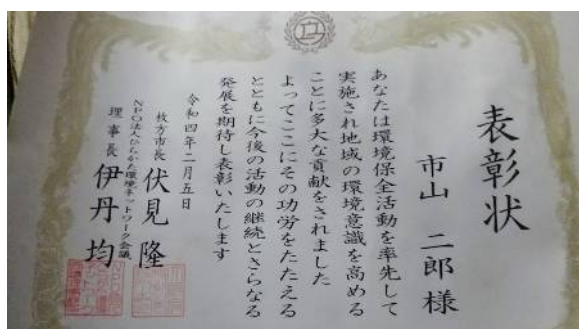 表彰状
市山 二郎 様
あなたは環境保全活動を率先して
実施され地域の環境意識を高める
ことに多大な貢献をされました
よってここにその功労をたたえる
とともに今後の活動の継続とさらなる
発展を期待し表彰いたします
令和四年二月五日
枚方市長 伏見 隆
NPO法人ひらかた環境ネットワーク会議
理事長 伊丹 均